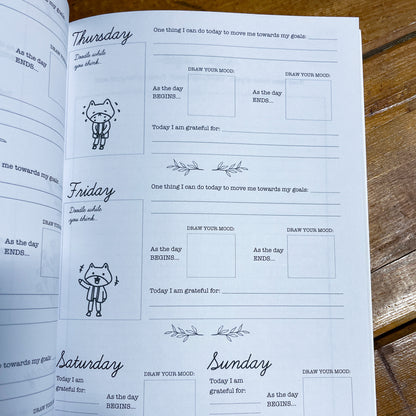 DRAW YOUR
As the day
ENDS...
me towards my goals:
DRAW YOUR
As the day
ENDS
me towards my goals
DRAW
As the day
ENDS
Thursday
Doodle while
you think...
One thing I can do today to move me towards my goals:
DRAW YOUR MOOD:
DRAW YOUR MOOD:
As the day
BEGINS...
As the day
ENDS...
Today I am grateful for:
Friday
Doodle while
you think...
One thing I can do today to move me towards my goals:
DRAW YOUR MOOD:
DRAW YOUR MOOD:
As the day
BEGINS...
As the day
ENDS...
Today I am grateful for:
Saturday
Today I am
grateful for:
DRAW YOUR MOOD:
As the day
BEGINS...
Sunday
Today I am
grateful for:
DRAW YOUR MOOD:
As the day
BEGINS...